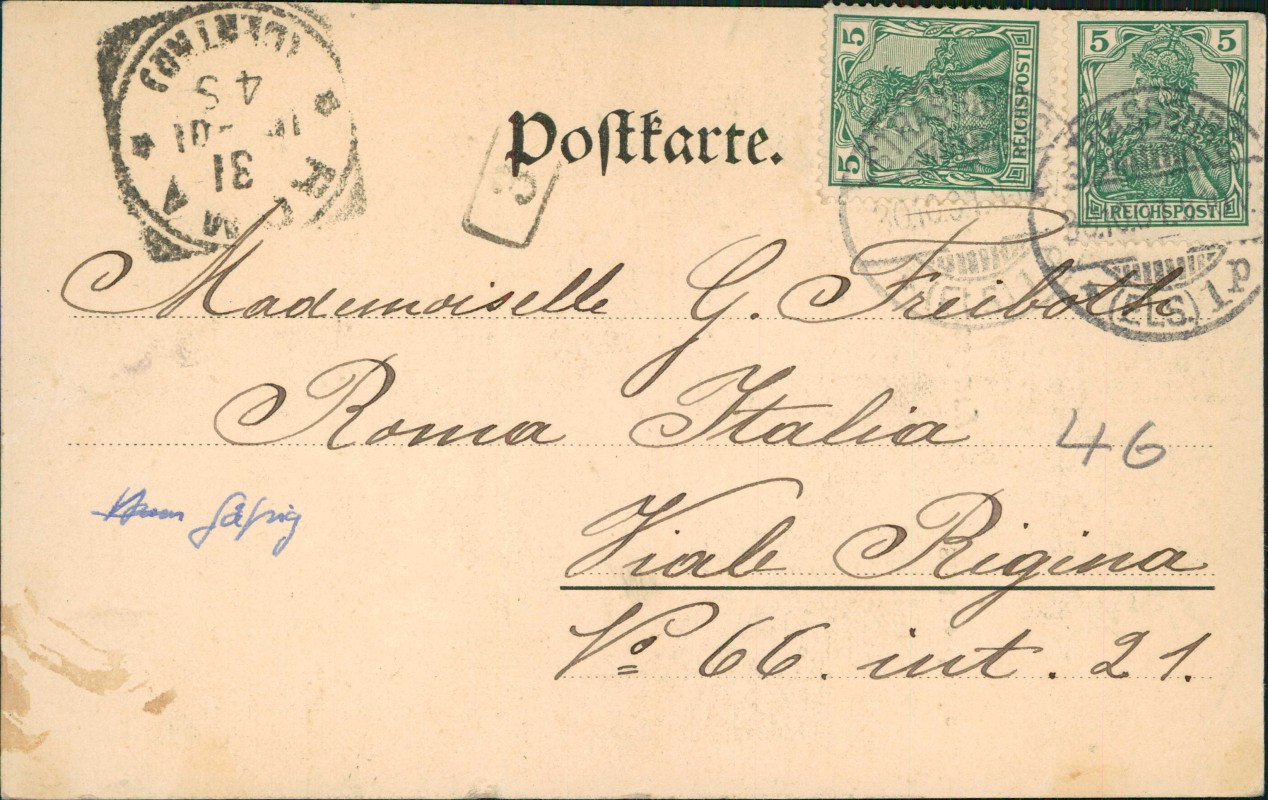 Postkarte.
5
5
REICHSPOST
5 5
REICHSPOST
ROMA
31
10-01
4 S
3
30.10.0
(ELS.) 1 p
Mademoiselle G. Freiboth
Roma Italia
46
Viale Rigina
No 66. int. 21.